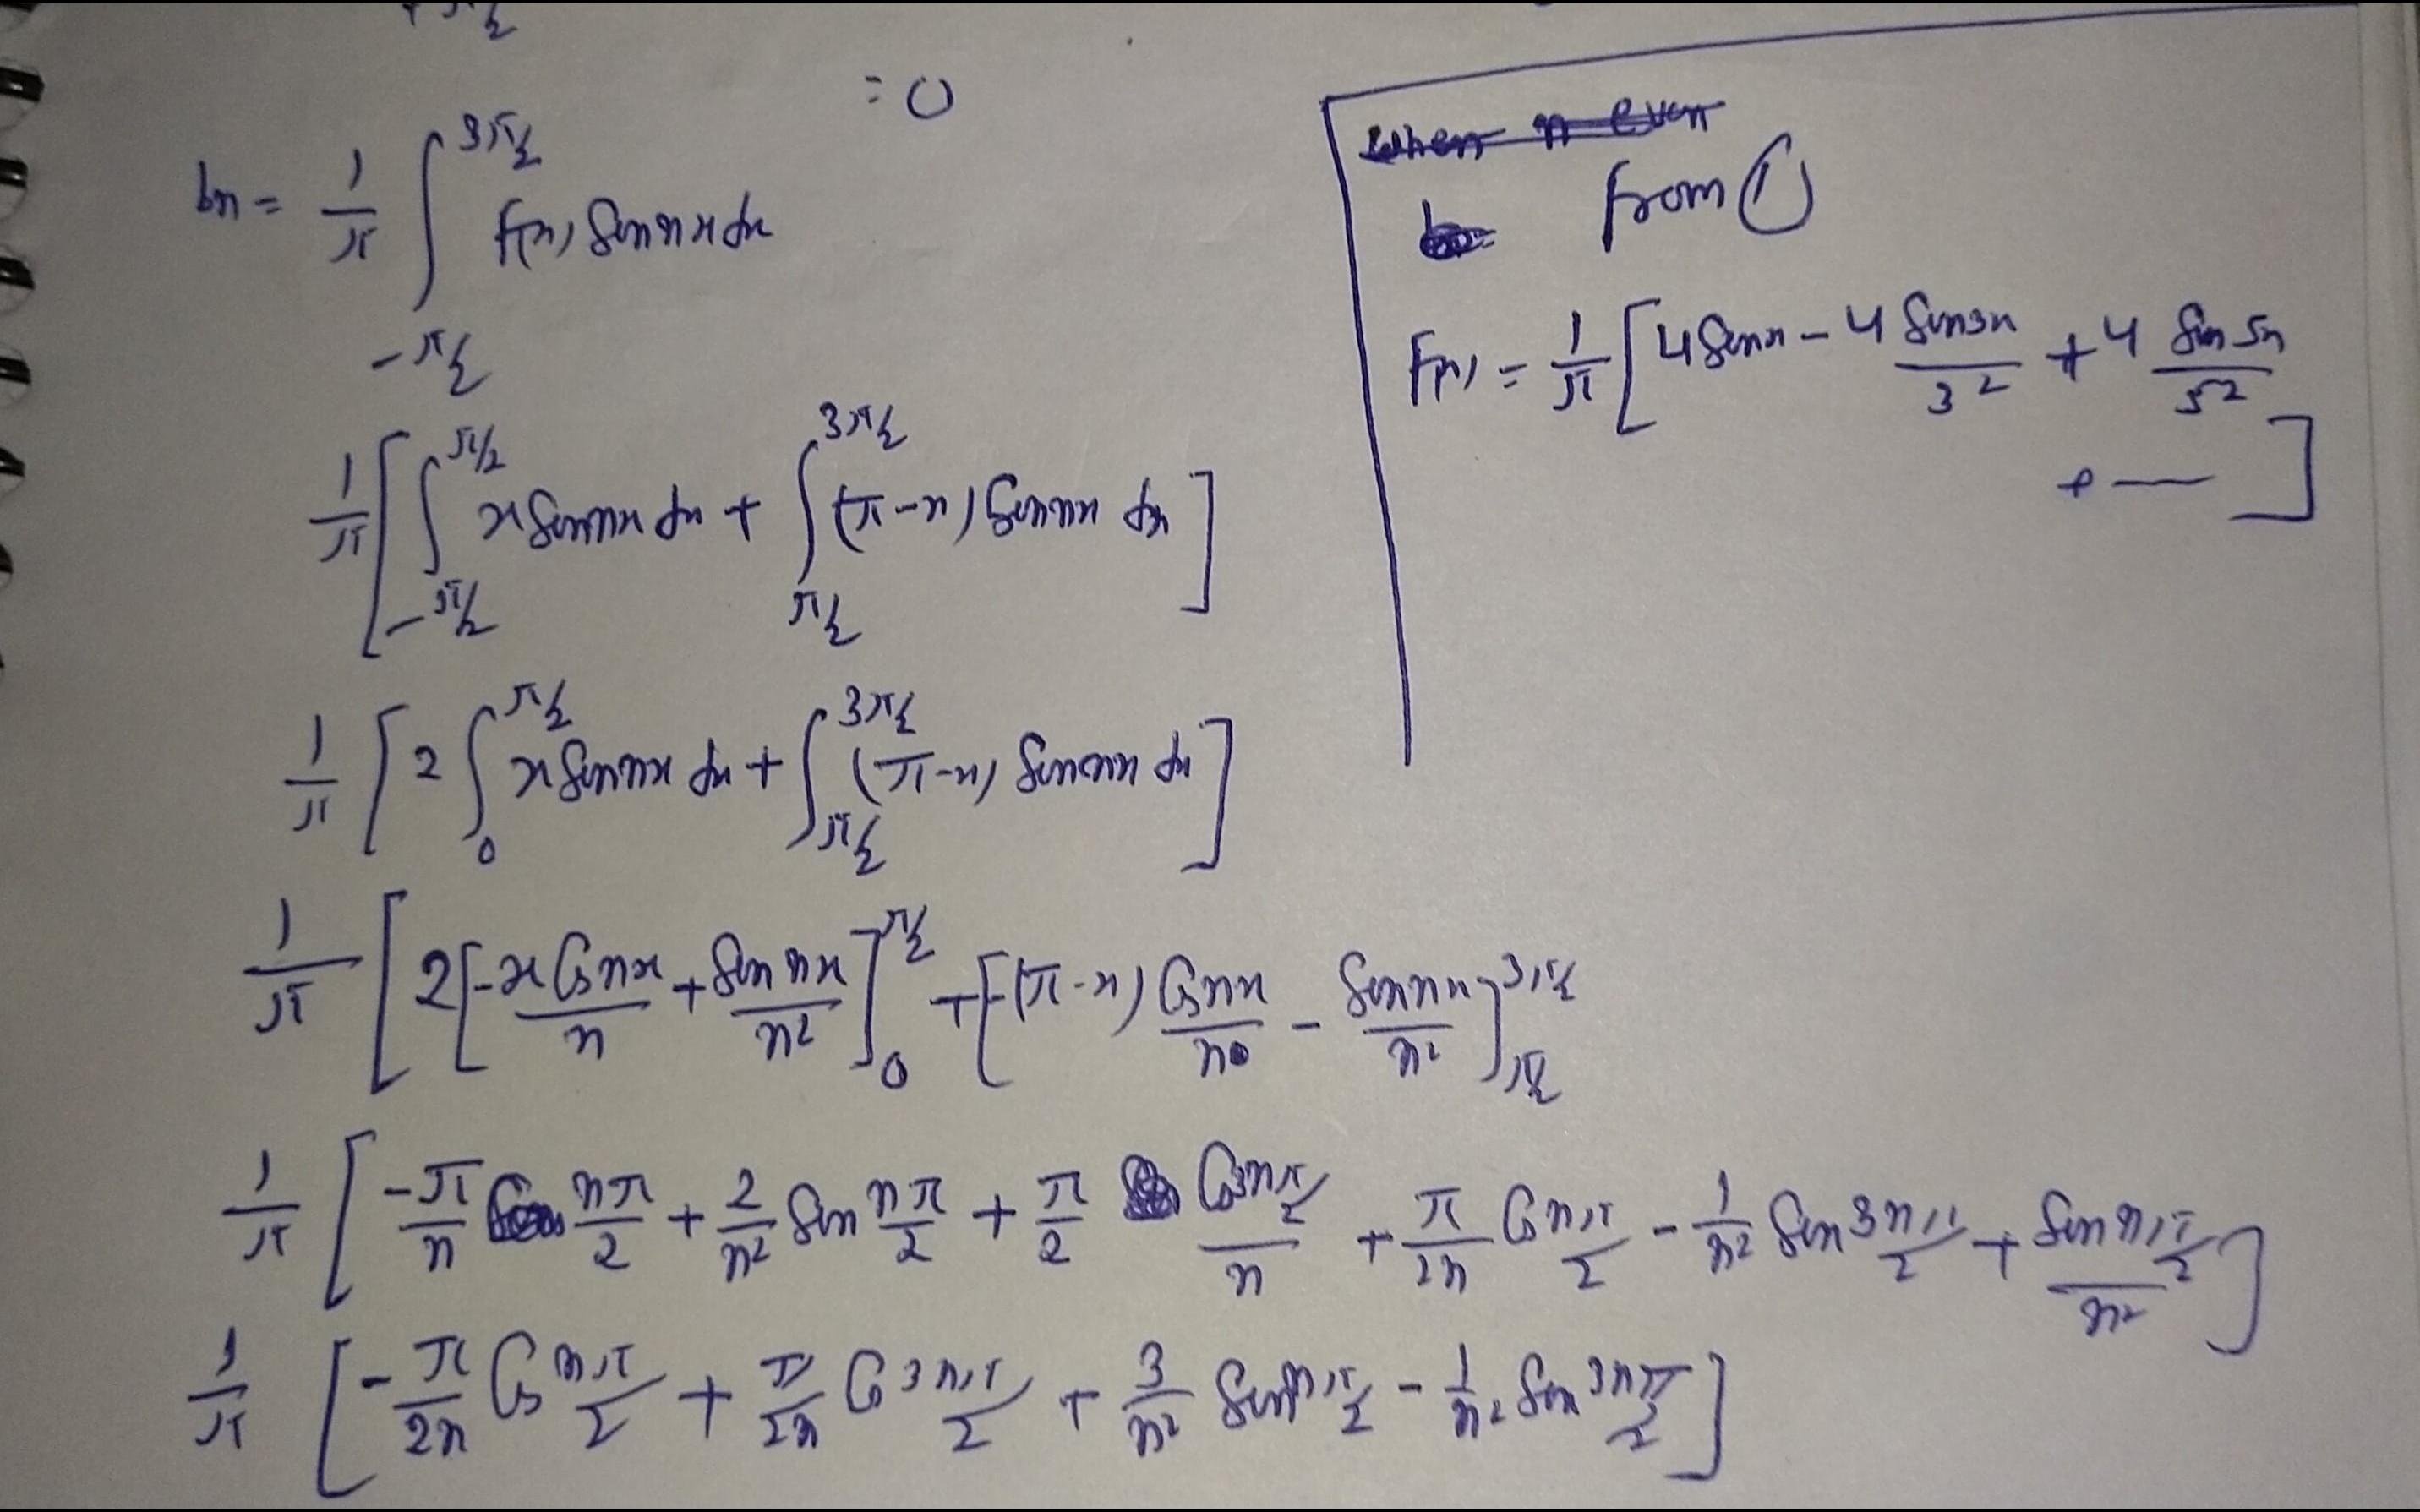 = 0
bn = 1/π ∫_{-π/2}^{3π/2} f(x) Sin nx dx
1/π [ ∫_{-π/2}^{π/2} x Sin nx dx + ∫_{π/2}^{3π/2} (π-x) Sin nx dx ]
1/π [ 2 ∫_0^{π/2} x Sin nx dx + ∫_{π/2}^{3π/2} (π-x) Sin nx dx ]
1/π [ 2[ -x Cos nx/n + Sin nx/n² ]_0^{π/2} + [ -(π-x) Cos nx/n - Sin nx/n² ]_{π/2}^{3π/2}
1/π [ -π/n Cos nπ/2 + 2/n² Sin nπ/2 + π/2 Cos 3nπ/2 /n + π/2n Cos nπ/2 - 1/n² Sin 3nπ/2 + Sin nπ/2 /n² ]
1/π [ -π/2n Cos nπ/2 + π/2n Cos 3nπ/2 + 3/n² Sin nπ/2 - 1/n² Sin 3nπ/2 ]
when n even
from ①
f(x) = 1/π [ 4 Sin x - 4 Sin 3x/3² + 4 Sin 5x/5²
+ — ]